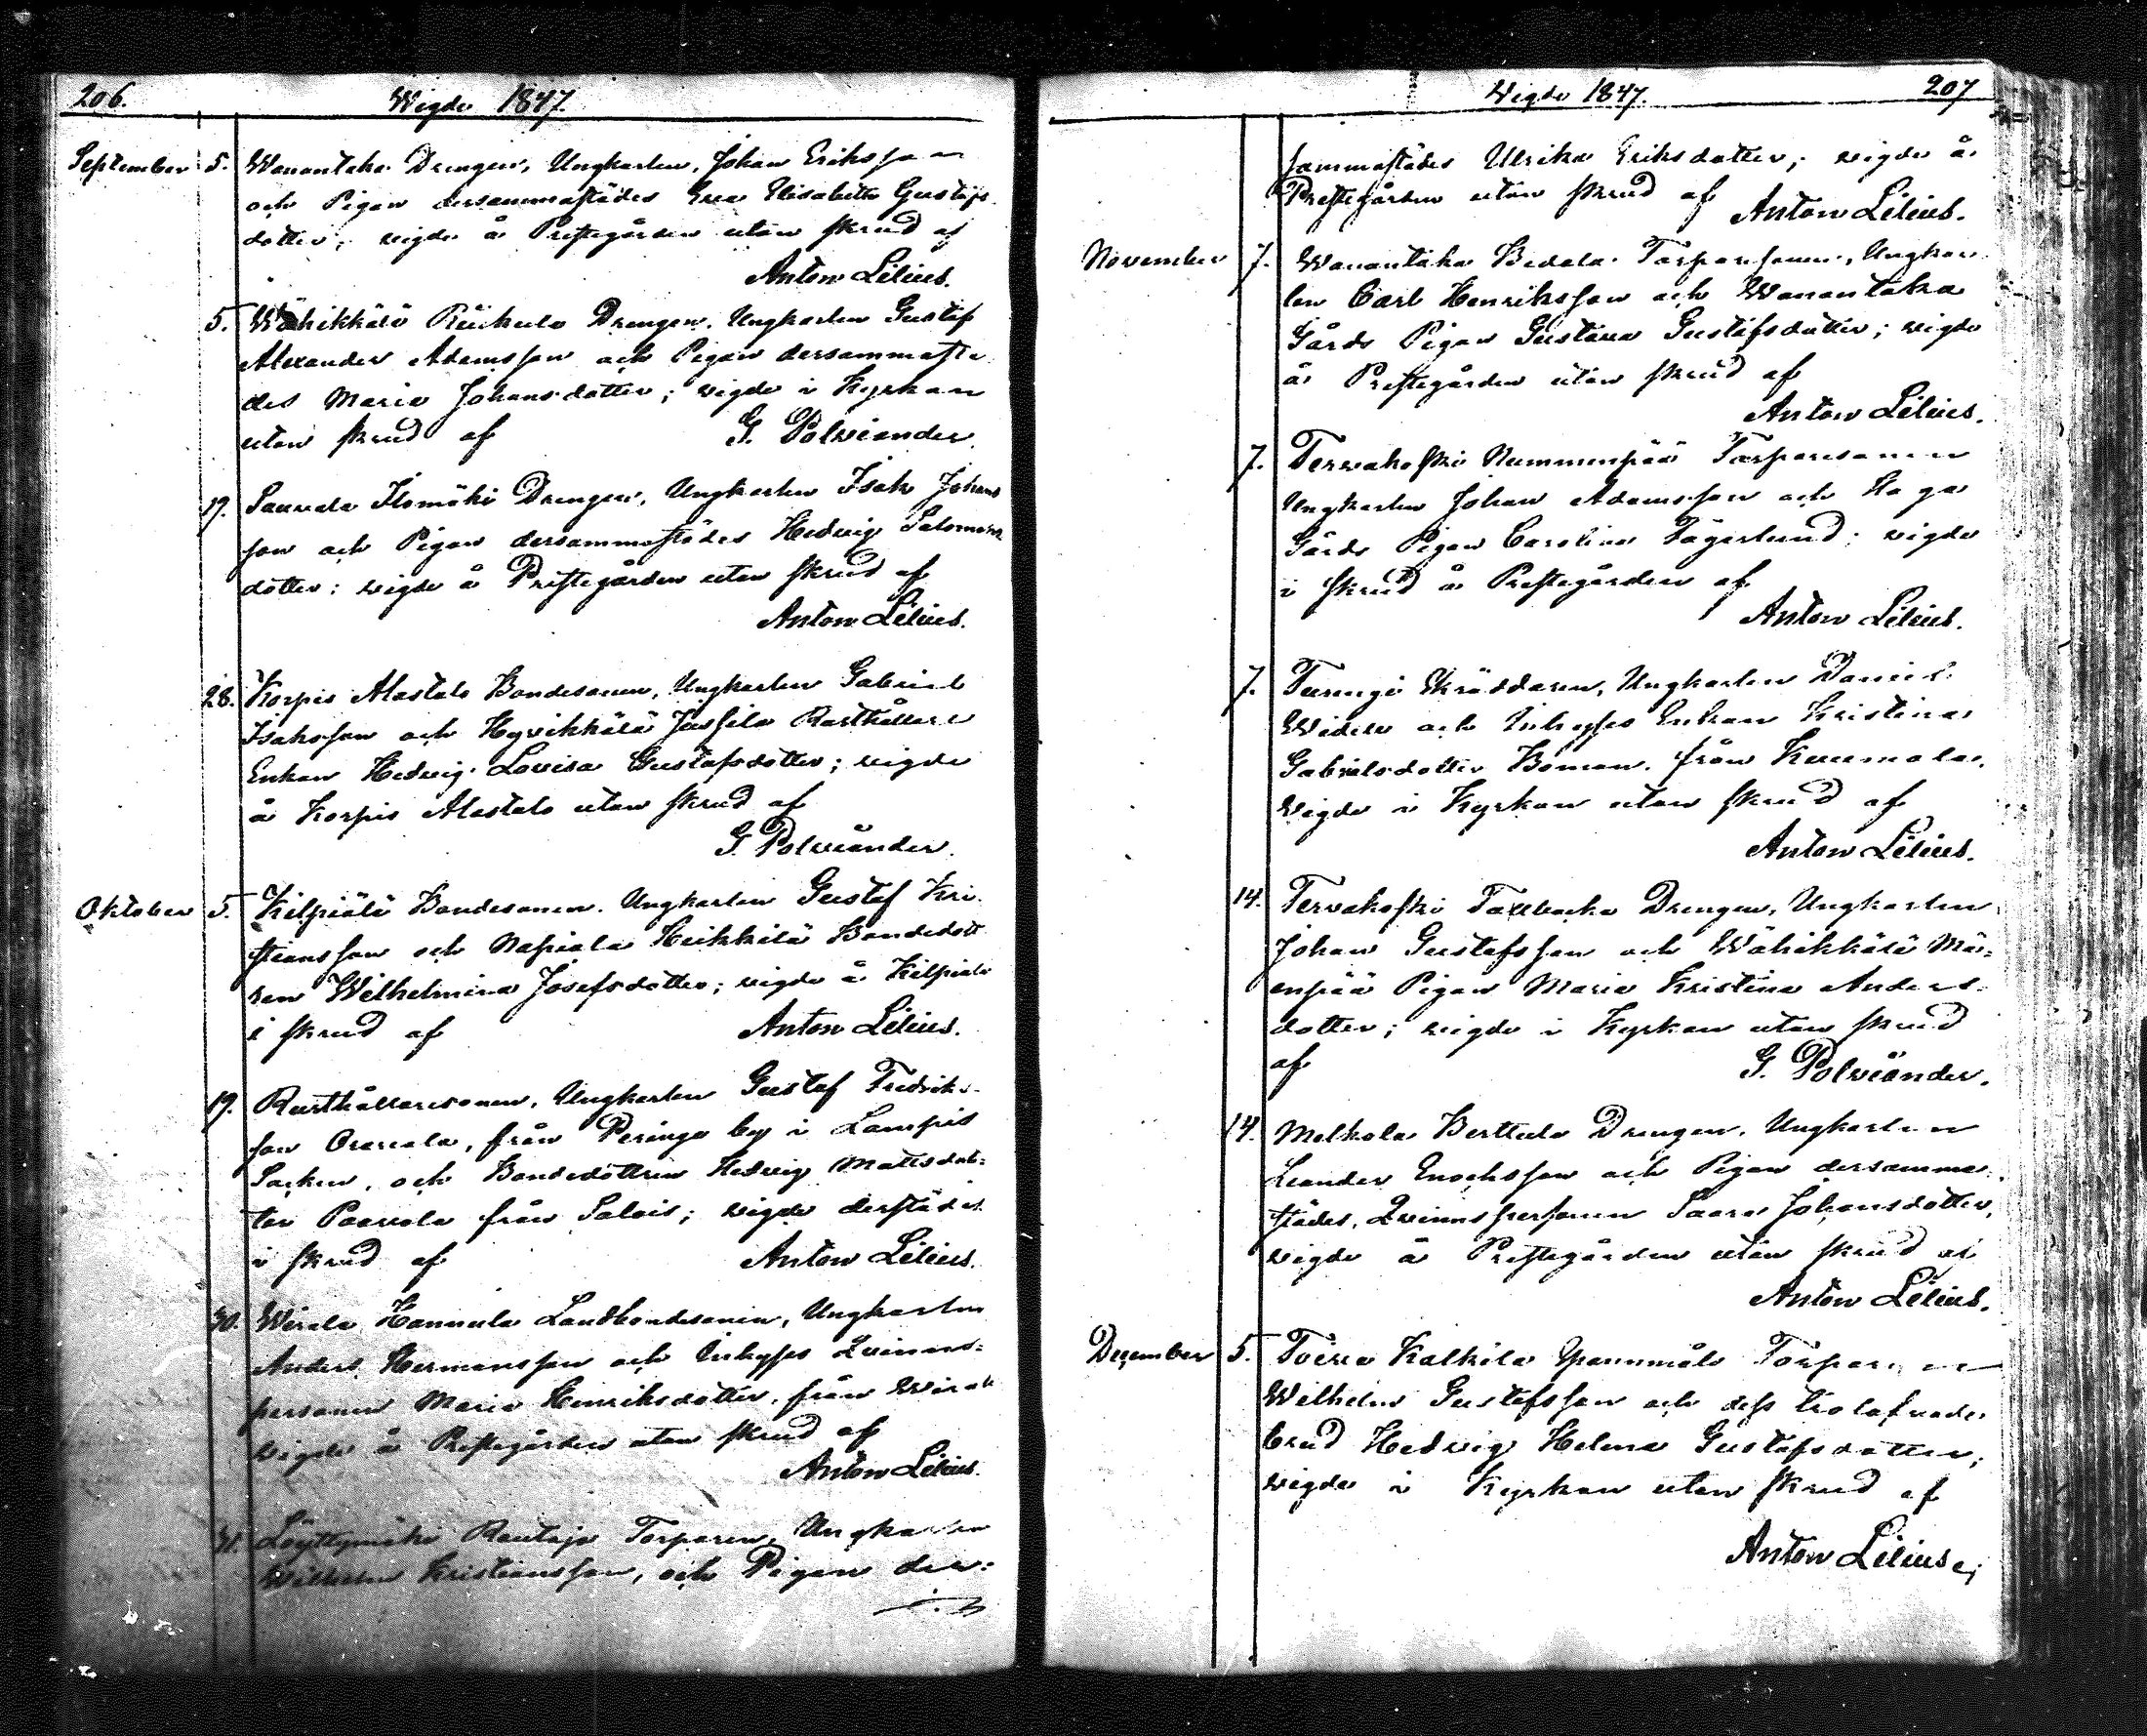 206.
Wigde 1847.
September 5. Wanantaka Drengen, Ungkarlen, Johan Eriksson
och Pigan dersammastädes Eva Elisabeth Gustafs
dotter; vigde å Prestegården utan skrud af
Anton Lilius.
5. Wähikkälä Drengen, Ungkarlen Gustaf
Alexander Adamsson och Pigan dersammastä
des Maria Johansdotter; vigde i Kyrkan
utan skrud af G. Polviander.
19. Saurala Ilomäki Drengen, Ungkarlen Isak Johans
son och Pigan dersammastädes Hedvig Salomons
dotter; vigde å Prestegården utan skrud af
Anton Lilius.
28. Korpis Alastalo Bondesonen, Ungkarlen Gabriel
Isaksson och Hyvikkälä Jussila Rusthållare
Enkan Hedvig Lovisa Gustafsdotter; vigde
å Korpis Alastalo utan skrud af
G. Polviander.
Oktober 5. Kilpiälä Bondesonen, Ungkarlen Gustaf Kri
stiansson och Napiala Heikkilä Bondedott
ren Wilhelmina Josefsdotter; vigde å Kilpiälä
i skrud af Anton Lilius.
19. Rusthållaresonen, Ungkarlen Gustaf Fredriks-
son från Peringo by i Lampis
Socken, och Bondedottren Hedvig Mattsdot=
ter Paavola från Salois; vigde derstädes
i skrud af Anton Lilius.
30. Wirala Hannula Landbondesonen, Ungkarlen
Anders Hermansson och Inhyses Qvinns=
personen Maria Henriksdotter, från Wirala
vigde å Prestegården utan skrud af
Anton Lilius.
31. Löyttymäki Rautaja Torparen, Ungkarlen
Wilhelm Kristiansson, och Pigan der=
Wigde 1847.
207
sammastädes Ulrika Eriksdotter; vigde å
Prestegården utan skrud af
Anton Lilius.
November 7. Wanantaka Torparsonen, Ungkar
len Carl Henriksson och Wanantaka
Gårds Pigan Gustava Gustafsdotter; vigde
å Prestegården utan skrud af
Anton Lilius.
7. Tervakoski Nummenpää Torparesonen
Ungkarlen Johan Adamsson och Haga
Gårds Pigan Carolina Fagerlund; vigde
i skrud å Prestegården af
Anton Lilius.
7. Turengi Skräddaren, Ungkarlen Daniel
Widell och Inhyses Enkan Kristina
Gabrielsdotter Boman, från Kuumola,
vigde i Kyrkan utan skrud af
Anton Lilius.
14. Tervakoski Tallbacka Drengen, Ungkarlen
Johan Gustafsson och Wähikkälä Mä=
enpää Pigan Maria Kristina Anders
dotter; vigde i Kyrkan utan skrud
af G. Polviander.
14. Melkola Berttula Drengen, Ungkarlen
Leander Enochsson och Pigan dersamma
städes, Qvinnspersonen Saara Johansdotter,
vigde å Prestegården utan skrud af
Anton Lilius.
December 5. Toivia Kalkila Torparen
Wilhelm Gustafsson och dess trolofvade
brud Hedvig Helena Gustafsdotter;
vigde i Kyrkan utan skrud af
Anton Lilius;